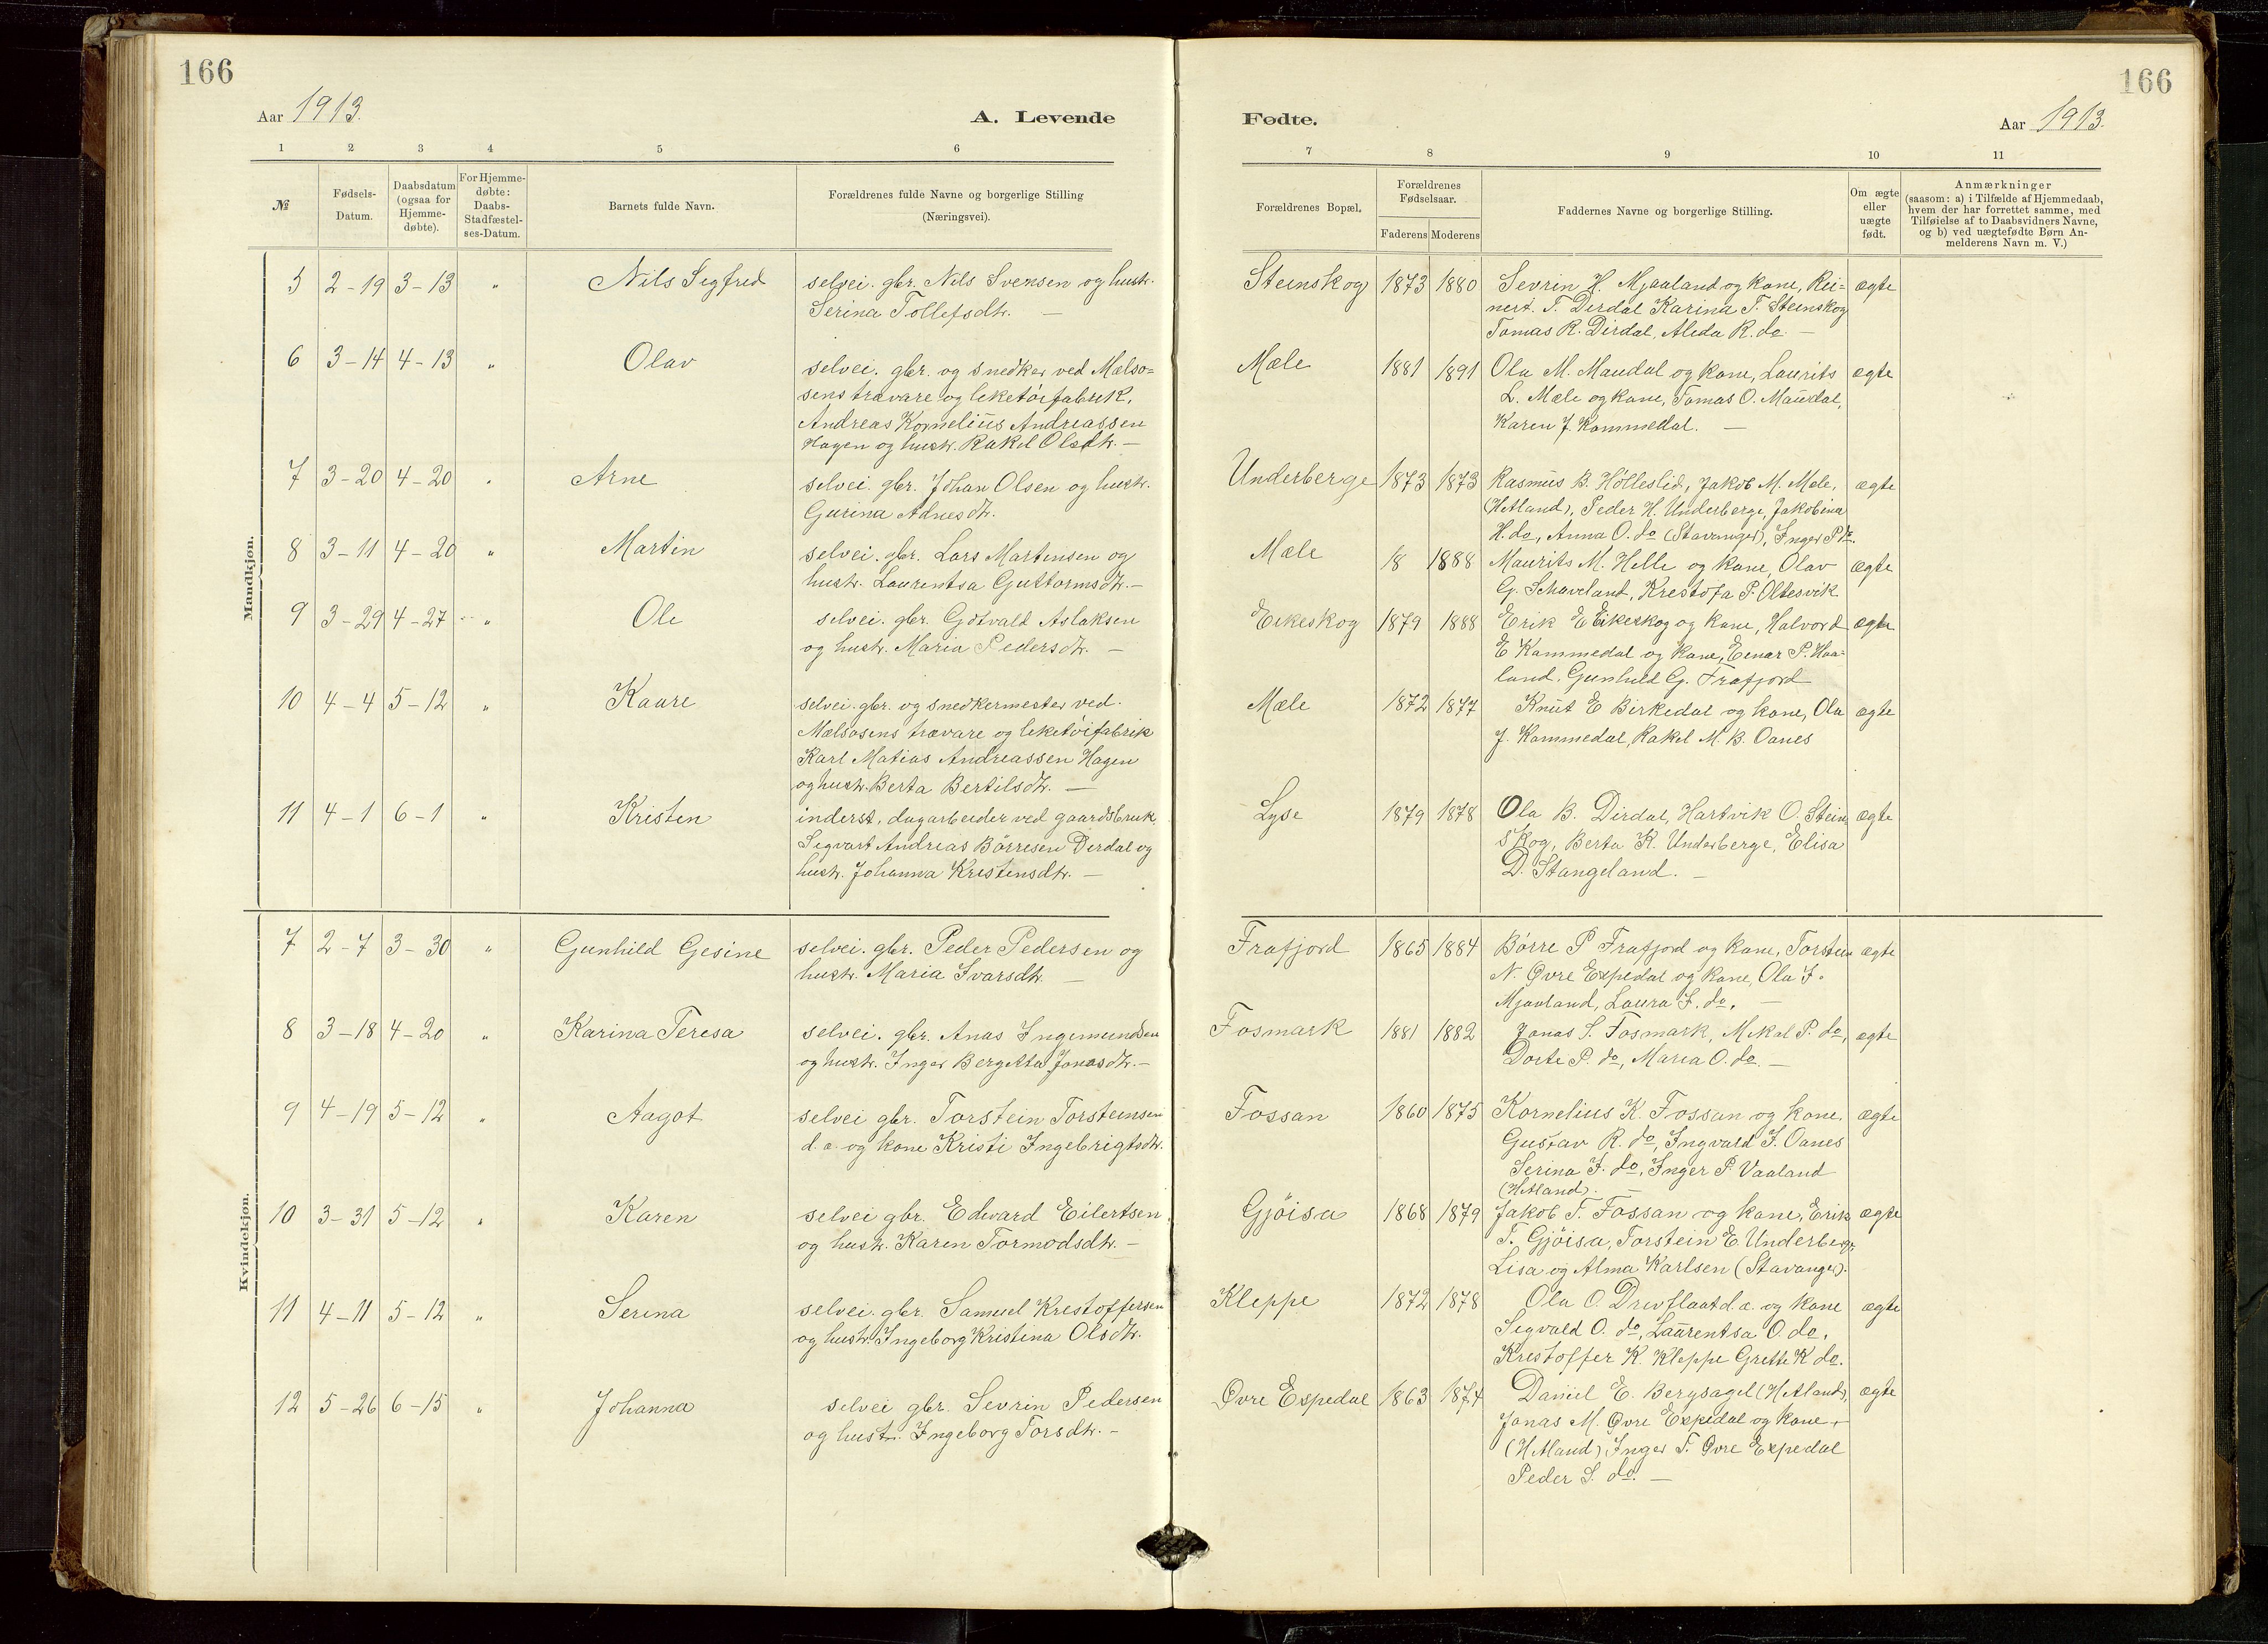 166
Aar 1913.
A. Levende
1 2 3 4 5 6
№
Fødsels-
Datum.
Daabsdatum
(ogsaa for
Hjemme-
døbte).
For Hjemme-
døbte:
Daabs-
Stadfæstel-
ses-Datum.
Barnets fulde Navn.
Forældrenes fulde Navne og borgerlige Stilling
(Næringsvei).
Mandkjøn.
5 2-19 3-13 " Nils Sigfred selvei. gbr. Nils Svensen og hustr.
Serina Tollefsdtr. —
6 3-14 4-13 " Olav selvei. gbr. og snedker ved Mælso=
sens trævare og leketøifabrik,
Andreas Kornelius Andreassen
Hagen og hustr. Rakel Olsdtr. —
7 3-20 4-20 " Arne selvei. gbr. Johan Olsen og hustr.
Gurina Adnesdtr.
8 3-11 4-20 " Martin selvei. gbr. Lars Martensen og
hustr. Laurentsa Guttormsdtr. —
9 3-29 4-27 " Ole selvei. gbr. Gotvald Aslaksen
og hustr. Maria Pedersdtr. —
10 4-4 5-12 " Kaare selvei. gbr. og snedkermester ved.
Mælsosens trævare og leketøifabrik
Karl Matias Andreassen Hagen
og hustr. Berta Bertilsdtr. —
11 4-1 6-1 " Kristen inderst, dagarbeider ved gaardsbruk,
Sigvart Andreas Børresen Dirdal og
hustr. Johanna Kristensdtr. —
Kvindekjøn.
7 2-7 3-30 " Gunhild Gesine selvei. gbr. Peder Pedersen og
hustr. Maria Ivarsdtr. —
8 3-18 4-20 " Karina Teresa selvei. gbr. Anas Ingemundsen
og hustr. Inger Bergitta Jonasdtr. —
9 4-19 5-12 " Aagot selvei gbr. Torstein Torsteinsen
d. a. og kone Kristi Ingebrigtsdtr.
10 3-31 5-12 " Karen selvei gbr. Edvard Eilertsen
og hustr. Karen Tormodsdtr. —
11 4-11 5-12 " Serina selvei. gbr. Samuel Kristoffersen
og hustr. Ingeborg Kristina Olsdtr.
12 5-26 6-15 " Johanna selvei gbr. Sevrin Pedersen
og hustr. Ingeborg Torsdtr. —
166
Fødte.
Aar 1913.
7 8 9 10 11
Forældrenes Bopæl.
Forældrenes
Fødselsaar.
Faderens Moderens
Faddernes Navne og borgerlige Stilling.
Om ægte
eller
uægte
født.
Anmærkninger
(saasom: a) i Tilfælde af Hjemmedaab,
hvem der har forrettet samme, med
Tilføielse af to Daabsvidners Navne,
og b) ved uægtefødte Børn An-
melderens Navn m. V.)
Steinskog 1873 1880 Sevrin H. Mjaaland og kone, Rei= ægte
nert. T. Dirdal Karina T. Steinskog
Tomas R. Dirdal, Alida R. do. —
Mæle 1881 1891 Ola M. Maudal og kone, Laurits ægte
L. Mæle og kone, Tomas O. Maudal,
Karen J. Kommedal. —
Underberge 1873 1873 Rasmus B. Hølleslid, Jakob M. Mele, ægte
(Hetland), Peder H. Underberge, Jakobina
H. do, Anna O. do (Stavanger), Inger P do.
Mæle 18 1888 Maurits M. Helle og kone, Olav ægte
G. Schaveland, Kristofa P. Oltesvik
Eikeskog 1879 1888 Erik E Eikeskog og kone, Halvord ægte
E Kommedal og kone, Einar P. Haa-
land, Gunhild G. Frafjord
Mæle 1872 1877 Knut E Birkedal og kone, Ola ægte
J. Kommedal, Rakel M. B. Oanes
Lyse 1879 1878 Ola B. Dirdal, Hartvik O. Stein= ægte
skog, Berta K. Underberge, Elisa
D. Stangeland. —
Frafjord 1865 1884 Børre P Frafjord og kone, Torstein ægte
N. Øvre Espedal og kone, Ola I.
Mjaaland, Laura I. do. —
Fosmark 1881 1882 Jonas S. Fosmark, Mikal P. do, ægte
Dorte P. do, Maria O. do. —
Fossan 1860 1875 Kornelius K. Fossan og kone, ægte
Gustav R. do, Ingvald I. Oanes
Serina I. do, Inger P. Vaaland
(Hetland).
Gjøisa 1868 1879 Jakob T. Fossan og kone, Erik ægte
T. Gjøisa, Torstein E. Underberge,
Lisa og Alma Karlsen (Stavanger).
Kleppe 1872 1878 Ola O. Drevflaat d. a. og kone ægte
Sigvald O. do, Laurentsa O. do.
Kristoffer K. Kleppe Grette K do.
Øvre Espedal 1863 1874 Daniel E. Bergsagel (Hetland), ægte
Jonas M. Øvre Espedal og kone
(Hetland), Inger T. Øvre Espedal
Peder S. do. —